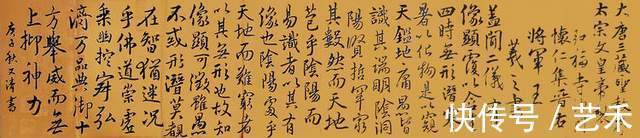 大唐三藏聖
太宗文皇帝
弘福寺
懷仁集晉
將軍王
羲之
蓋聞二儀
像顯覆以含
四時無形潛
暑以化物是以窺
天鑑地庸愚皆
識其端明陰洞
陽賢哲罕窮
其數然而天地
苞乎陰陽而
易識者以其有
像也陰而難窮者
以其無形也故知
像顯可徵雖愚
不惑形潛莫覩
在智猶迷況
乎佛道崇虛
乘幽控寂弘
濟萬品典御十
方舉威而無
上抑神力
庚子秋又清書
快传号/艺禾